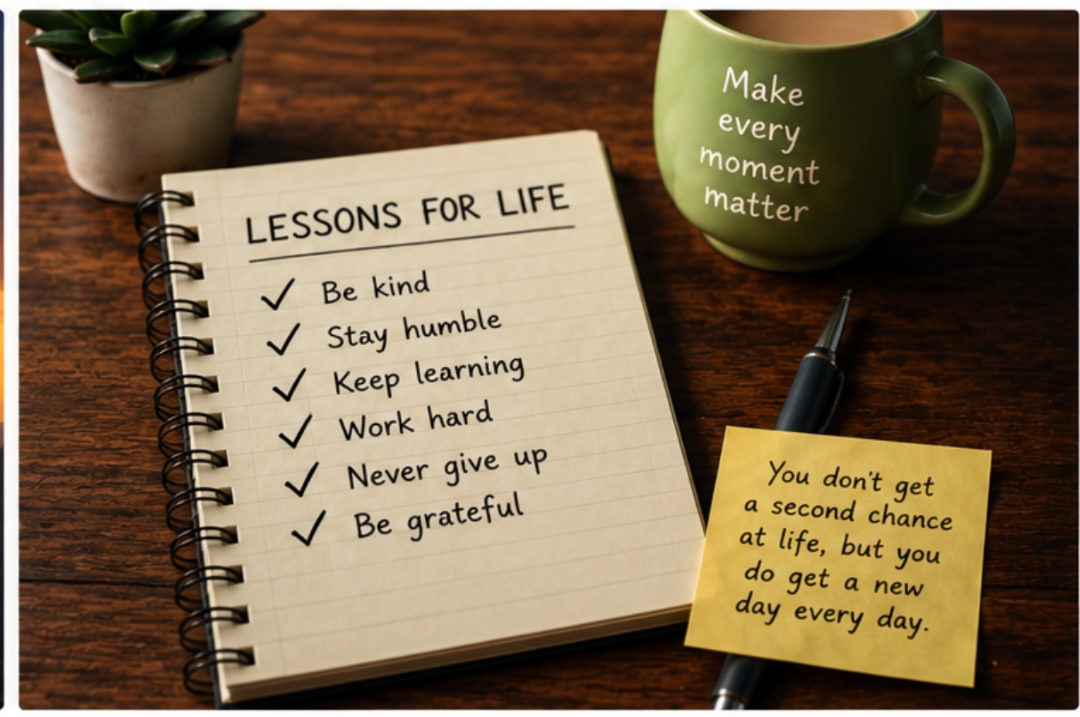 LESSONS FOR LIFE
✓ Be kind
✓ Stay humble
✓ Keep learning
✓ Work hard
✓ Never give up
✓ Be grateful
Make
every
moment
matter
You don't get
a second chance
at life, but you
do get a new
day every day.